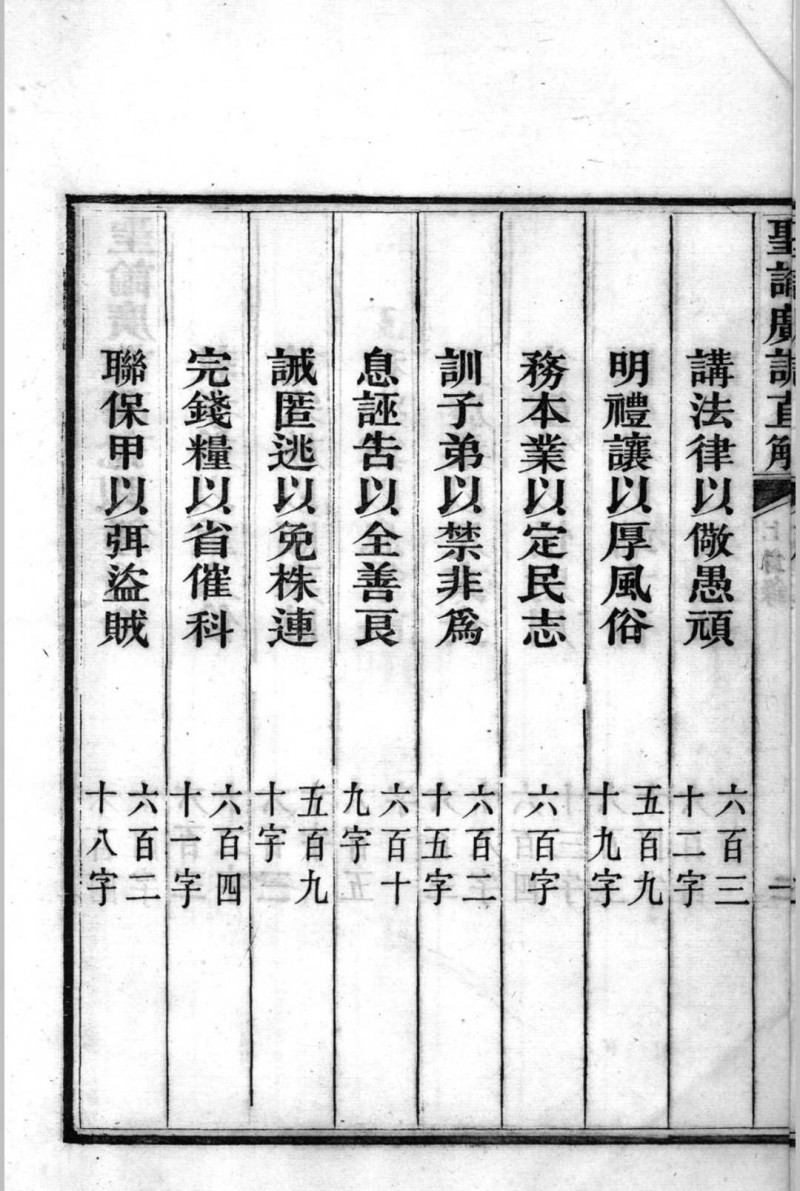 聖諭廣訓直解
上 目錄
二
講法律以儆愚頑 六百三十二字
明禮讓以厚風俗 五百九十九字
務本業以定民志 六百字
訓子弟以禁非爲 六百二十五字
息誣告以全善良 六百十九字
誡匿逃以免株連 五百九十字
完錢糧以省催科 六百四十一字
聯保甲以弭盜賊 六百二十八字